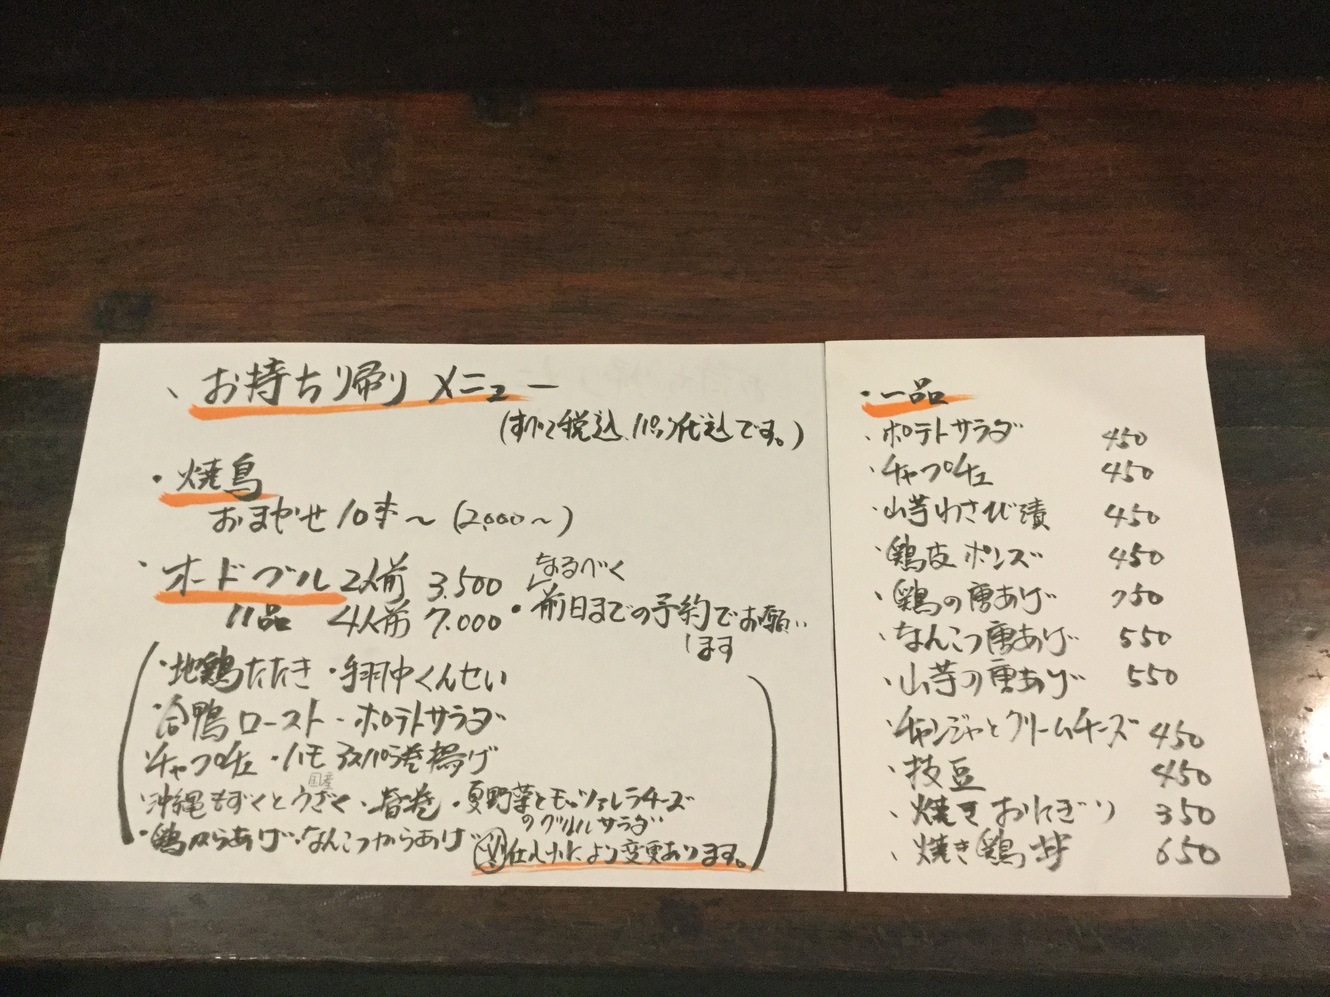 、お持ち帰り メニュー
(すべて税込、パック代込です。)
・焼鳥
おまかせ 10本〜 (2,000〜)
・オードブル 2人前 3.500
11品 4人前 7.000
なるべく
・前日までの予約でお願い
します
・地鶏たたき・手羽中くんせい
・合鴨ロースト・ポテトサラダ
・チャプチェ・ハモ アスパラ巻揚げ
国産
・沖縄もずくとうざく・春巻・夏野菜とモッツァレラチーズ
のグリルサラダ
・鶏からあげ・なんこつからあげ
仕入れにより変更あります。
・一品
、ポテトサラダ 450
・チャプチェ 450
・山芋わさび漬 450
・鶏皮ポンズ 450
・鶏の唐あげ 750
・なんこつ唐あげ 550
・山芋の唐あげ 550
・チャンジャとクリームチーズ 450
・枝豆 450
・焼きおにぎり 350
、焼き鶏丼 650